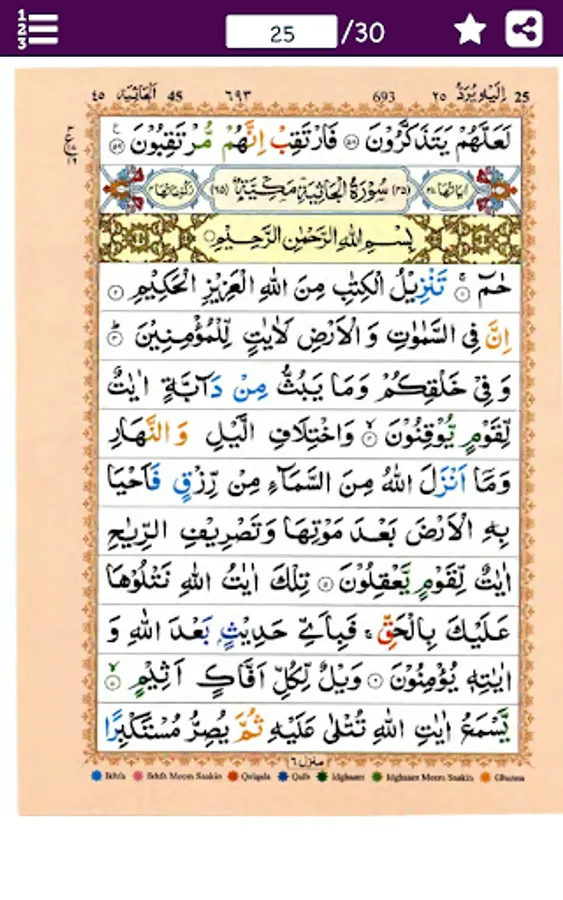 1 2 3
25 /30
25 اِلَيْهِ يُرَدُّ ٢٥ 693 ٦٩٣ 45 اَلْجَاثِيَة ٤٥
لَعَلَّهُمْ يَتَذَكَّرُوْنَ ۝٥٨ فَارْتَقِبْ اِنَّهُمْ مُّرْتَقِبُوْنَ ۝٥٩
سُوْرَةُ الْجَاثِيَةِ مَكِّيَّةٌ (٦٥)
بِسْمِ اللّٰهِ الرَّحْمٰنِ الرَّحِيْمِ
حٰمٓ ۝١ تَنْزِيْلُ الْكِتٰبِ مِنَ اللّٰهِ الْعَزِيْزِ الْحَكِيْمِ ۝٢
اِنَّ فِي السَّمٰوٰتِ وَ الْاَرْضِ لَاٰيٰتٍ لِّلْمُؤْمِنِيْنَ ۝٣ؕ
وَ فِيْ خَلْقِكُمْ وَمَا يَبُثُّ مِنْ دَآبَّةٍ اٰيٰتٌ
لِّقَوْمٍ يُّوْقِنُوْنَ ۝٤ۙ وَاخْتِلَافِ الَّيْلِ وَ النَّهَارِ
وَمَا اَنْزَلَ اللّٰهُ مِنَ السَّمَآءِ مِنْ رِّزْقٍ فَاَحْيَا
بِهِ الْاَرْضَ بَعْدَ مَوْتِهَا وَتَصْرِيْفِ الرِّيٰحِ
اٰيٰتٌ لِّقَوْمٍ يَّعْقِلُوْنَ ۝٥ تِلْكَ اٰيٰتُ اللّٰهِ نَتْلُوْهَا
عَلَيْكَ بِالْحَقِّ ۚ فَبِاَيِّ حَدِيْثٍۭ بَعْدَ اللّٰهِ وَ
اٰيٰتِهٖ يُؤْمِنُوْنَ ۝٦ وَيْلٌ لِّكُلِّ اَفَّاكٍ اَثِيْمٍ ۝٧ۙ
يَّسْمَعُ اٰيٰتِ اللّٰهِ تُتْلٰى عَلَيْهِ ثُمَّ يُصِرُّ مُسْتَكْبِرًا
منزل ٦
Ikhfa Ikhfa Meem Saakin Qalqala Qalb Idghaam Idghaam Meem Saakin Ghunna